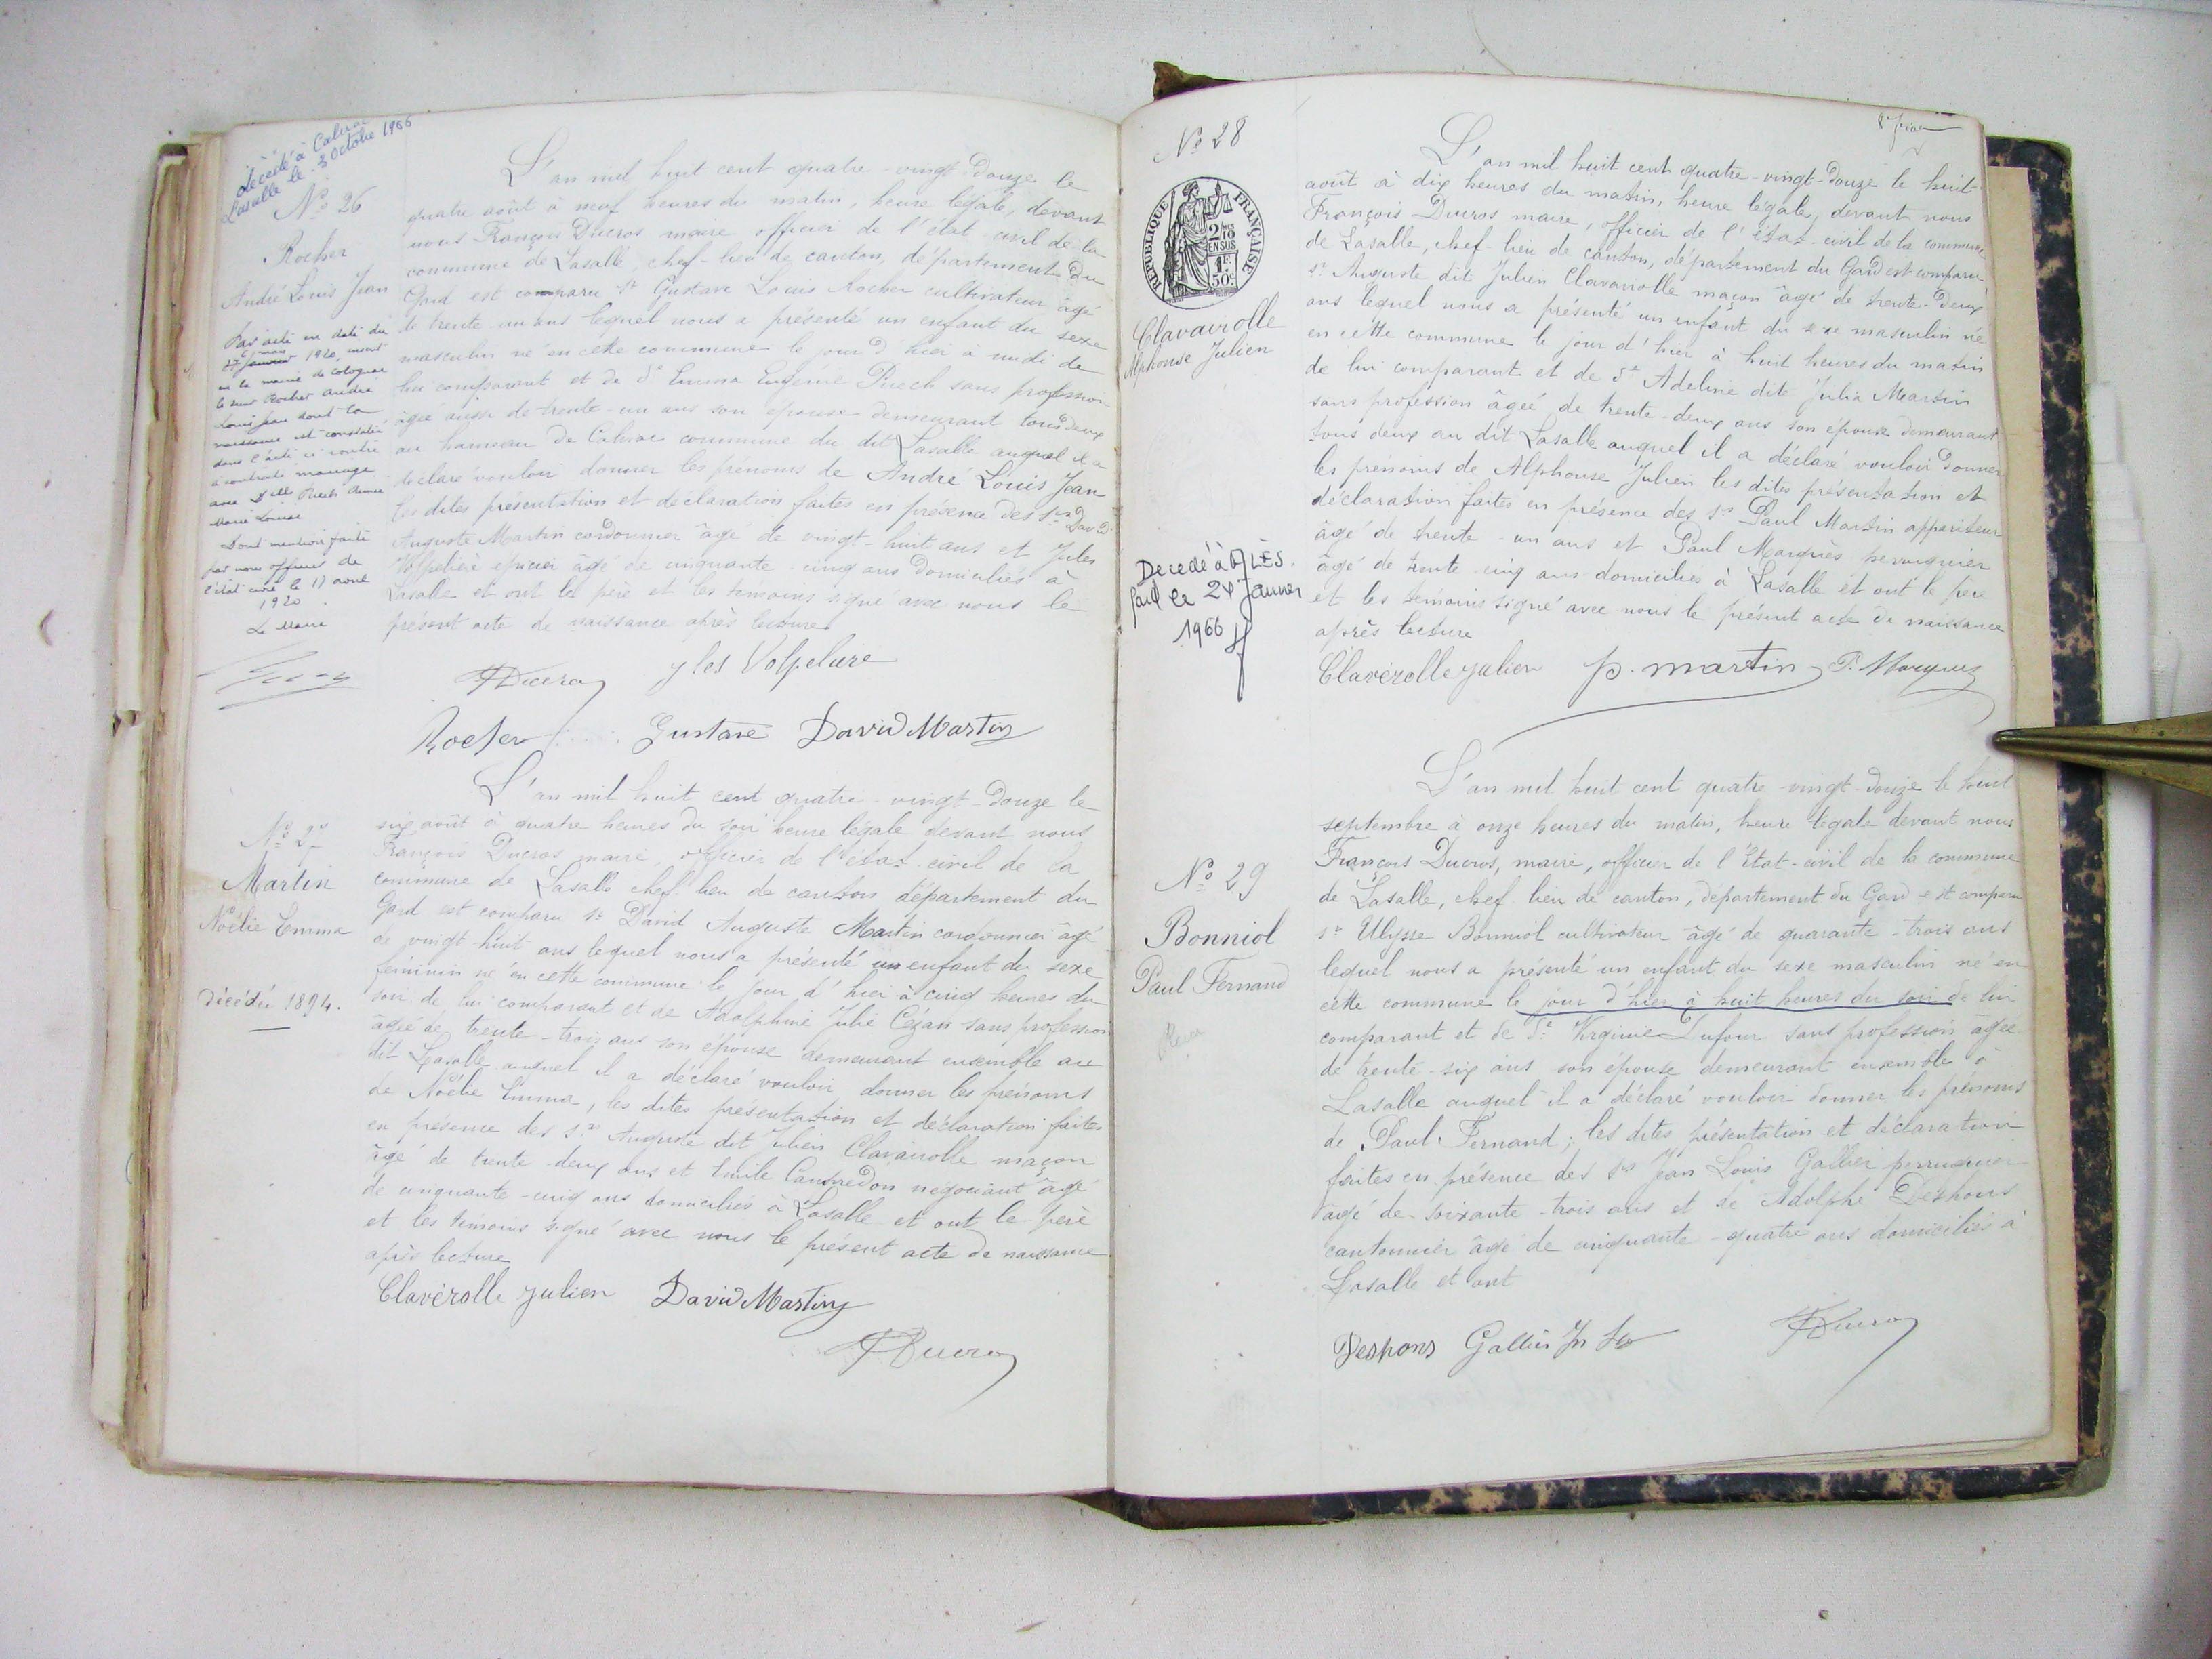 décédé à Calviac
Lasalle le 3 Octobre 1966
No 26
Rocher
André Louis Jean
Par acte en date du
1920, inscrit
à la mairie de Colognac
le sieur Rocher André
Louis Jean dont la
naissance est constatée
dans l'acte ci contre
a contracté mariage
avec Delle Puech
Marie Louise
Dont mention faite
par nous officier de
l'état civil le 11 avril
1920
Le Maire
L'an mil huit cent quatre-vingt-douze le
quatre août à neuf heures du matin, heure légale, devant
nous François Ducros maire officier de l'état civil de la
commune de Lasalle, chef-lieu de canton, département du
Gard est comparu sr Gustave Louis Rocher cultivateur âgé
de trente-un ans lequel nous a présenté un enfant du sexe
masculin né en cette commune le jour d'hier à midi de
lui comparant et de de Emma Eugénie Puech sans profession
âgée aussi de trente-un ans son épouse demeurant tous deux
au hameau de Calviac commune du dit Lasalle auquel il a
déclaré vouloir donner les prénoms de André Louis Jean
les dites présentation et déclaration faites en présence des srs David
Auguste Martin cordonnier âgé de vingt-huit ans et Jules
Volpelière épicier âgé de cinquante-cinq ans domiciliés à
Lasalle et ont le père et les témoins signé avec nous le
présent acte de naissance après lecture
FDucros Jles Volpeliere
Rocher Gustave David Martin
No 27
Martin
Noélie Emma
Décédée 1894.
L'an mil huit cent quatre-vingt-douze le
six août à quatre heures du soir heure légale devant nous
François Ducros maire, officier de l'état-civil de la
commune de Lasalle chef lieu de canton département du
Gard est comparu sr David Auguste Martin cordonnier âgé
de vingt huit ans lequel nous a présenté un enfant du sexe
féminin né en cette commune le jour d'hier à cinq heures du
soir de lui comparant et de Adolphine Julie Cézan sans profession
âgée de trente-trois ans son épouse demeurant ensemble au
dit Lasalle auquel il a déclaré vouloir donner les prénoms
de Noélie Emma, les dites présentation et déclaration faites
en présence des srs Auguste dit Julien Clavairolle maçon
âgé de trente-deux ans et Emile Causredon négociant âgé
de cinquante-cinq ans domiciliés à Lasalle et ont le père
et les témoins signé avec nous le présent acte de naissance
après lecture
Clavérolle Julien David Martin
FDucros
No 28
RÉPUBLIQUE FRANÇAISE
2/10
EN SUS
1F
50c
Clavairolle
Alphonse Julien
Décédé à ALÈS
Gard le 24 Janvier
1966
L'an mil huit cent quatre-vingt-douze le huit
août à dix heures du matin, heure légale, devant nous
François Ducros maire, officier de l'état-civil de la commune
de Lasalle, chef-lieu de canton, département du Gard est comparu
sr Auguste dit Julien Clavairolle maçon âgé de trente-deux
ans lequel nous a présenté un enfant du sexe masculin né
en cette commune le jour d'hier à huit heures du matin
de lui comparant et de de Adeline dite Julia Martin
sans profession âgée de trente-deux ans son épouse demeurant
tous deux au dit Lasalle auquel il a déclaré vouloir donner
les prénoms de Alphonse Julien les dites présentation et
déclaration faites en présence des srs Paul Martin appariteur
âgé de trente-un ans et Paul Marquès perruquier
âgé de trente cinq ans domiciliés à Lasalle et ont le père
et les témoins signé avec nous le présent acte de naissance
après lecture
Clavérolle Julien p. martin P. Marquès
No 29
Bonniol
Paul Fernand
L'an mil huit cent quatre-vingt-douze le huit
septembre à onze heures du matin, heure légale devant nous
François Ducros, maire, officier de l'État-civil de la commune
de Lasalle, chef-lieu de canton, département du Gard est comparu
sr Ulysse Bonniol cultivateur âgé de quarante-trois ans
lequel nous a présenté un enfant du sexe masculin né en
cette commune le jour d'hier à huit heures du soir de lui
comparant et de de Virginie Dufour sans profession âgée
de trente-six ans son épouse demeurant ensemble à
Lasalle auquel il a déclaré vouloir donner les prénoms
de Paul Fernand; les dites présentation et déclaration
faites en présence des srs Jean Louis Gallier perruquier
âgé de soixante-trois ans et de Adolphe Deshons
cantonnier âgé de cinquante-quatre ans domiciliés à
Lasalle et ont
Deshons Gallier Jn Ls FDucros